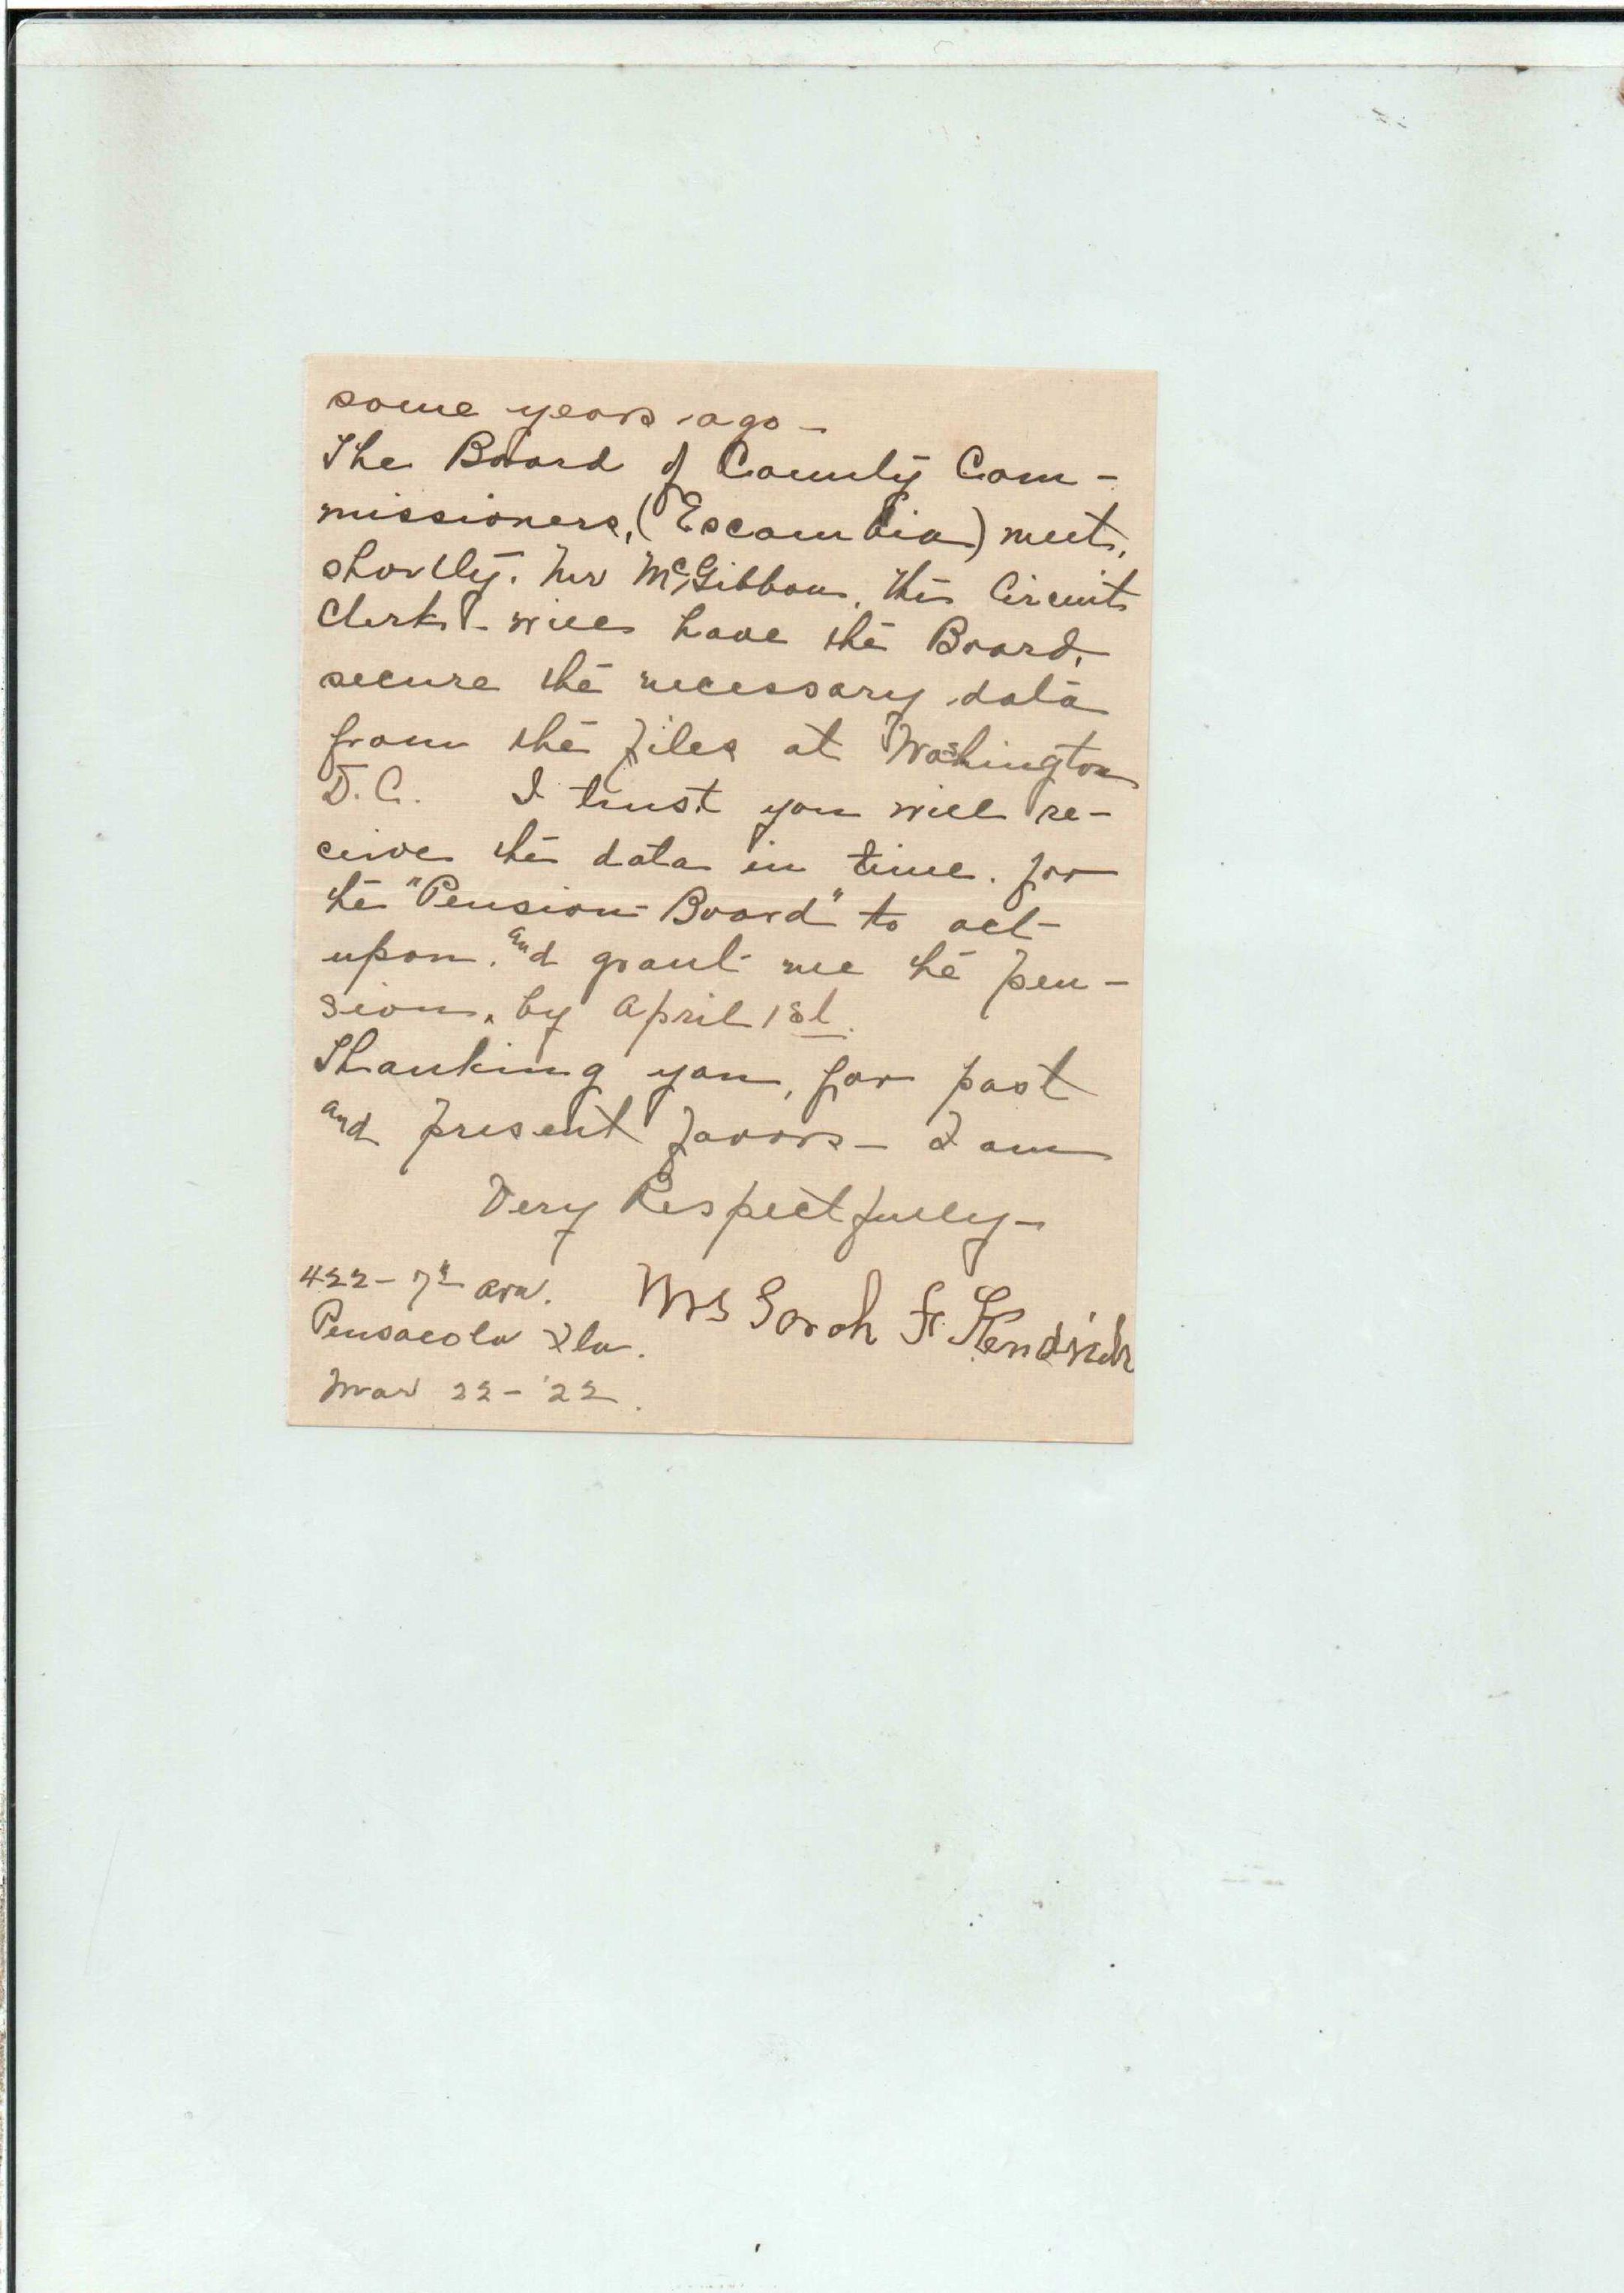 some years ago -
The Board of County Com-
missioners, (Escambia) meet,
shortly. Mr McGibbon, the Circuit
Clerk - will have the Board,
secure the necessary data
from the files at Washington
D.C. I trust you will re-
ceive the data in time. for
the "Pension Board" to act
upon. and grant me the pen-
sion, by April 1st.
Thanking you, for past
and present favors - I am
Very Respectfully -
422 - 7th Ave.
Mrs Sarah F. Kendrick
Pensacola Fla.
Mar 22 - '22.